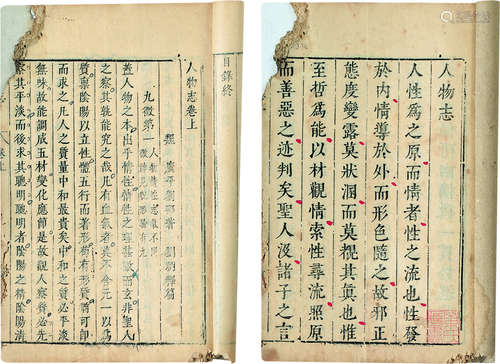 人物志
人性爲之原而情者性之流也性發
於內情導於外而形色隨之故邪正
態度變露莫狀溷而莫覩其眞也惟
至哲爲能以材觀情索性尋流照原
而善惡之迹判矣聖人沒諸子之言
目錄終
人物志卷上
魏 廣平劉邵著 劉昞釋篇
九徵第一 人物情性志氣不同
徵神見貌形驗有九
蓋人物之本出乎情性情性之理甚微而玄非聖人
之察其孰能究之哉凡有血氣者莫不含元一以爲
質稟陰陽以立性體五行而著形苟有形質猶可即
而求之凡人之質量中和最貴矣中和之質必平淡
無味故能調成五材變化應節是故觀人察質必先
察其平淡而後求其聰明聰明者陰陽之精陰陽清